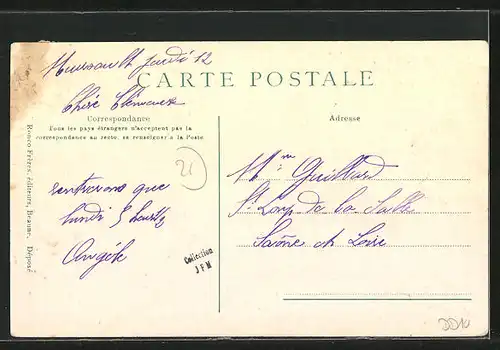 Meursault jeudi 12
CARTE POSTALE
Chère
Correspondance
Tous les pays étrangers n'acceptent pas la
correspondance au recto, se renseigner à la Poste
Adresse
21
rentrerons que
lundi 5 heures
Angèle
Mme Guillard
St Loup de la Salle
Saône et Loire
Collection
J F M
Ronco Frères, éditeurs, Beaune. Déposé
DD10